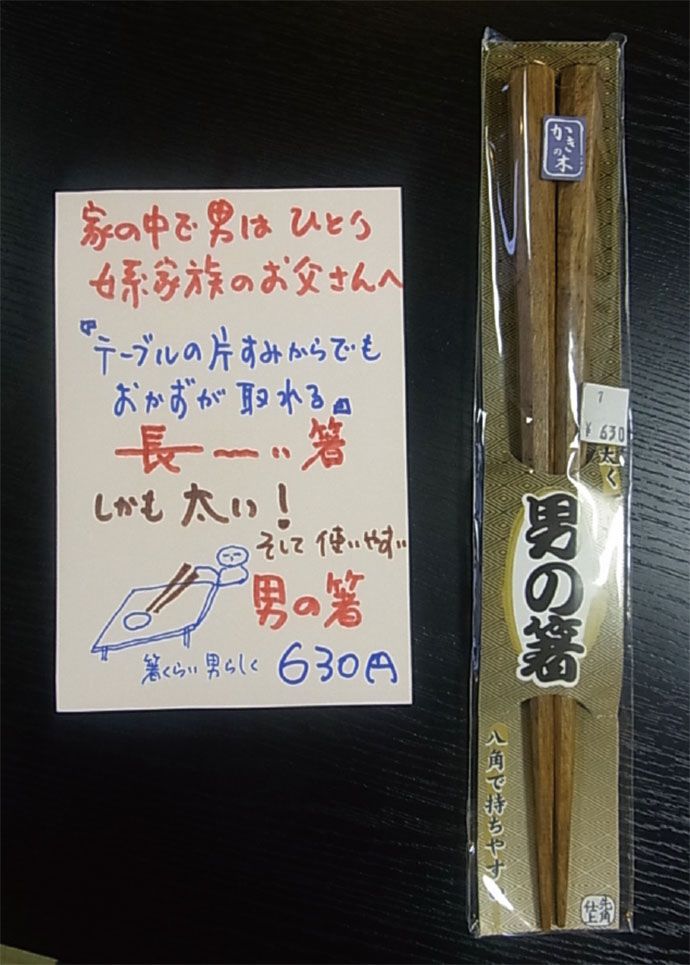 家の中で男は ひとり
女系家族のお父さんへ
『テーブルの片すみからでも
おかずが 取れる』
長〜い 箸
しかも 太い!
そして 使いやすい
男の箸
箸くらい 男らしく 630円
かきの木
7
¥ 630
太く
男の箸
八角で持ちやす
先角
仕上